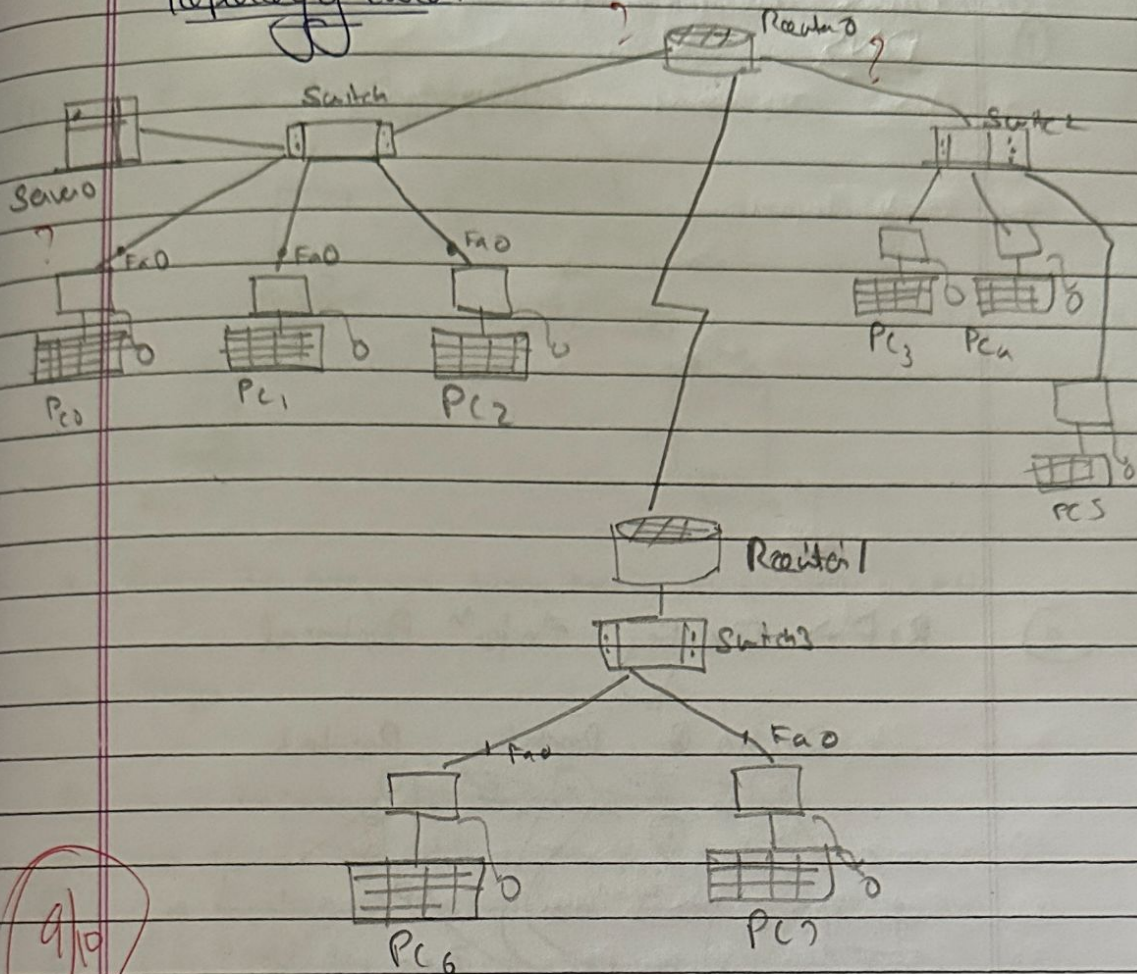 Router0
?
?
Switch
Switch
Server0
?
Fa0
Fa0
Fa0
PC3
PC4
PC0
PC1
PC2
PC5
Router1
Switch3
Fa0
Fa0
9/10
PC6
PC7